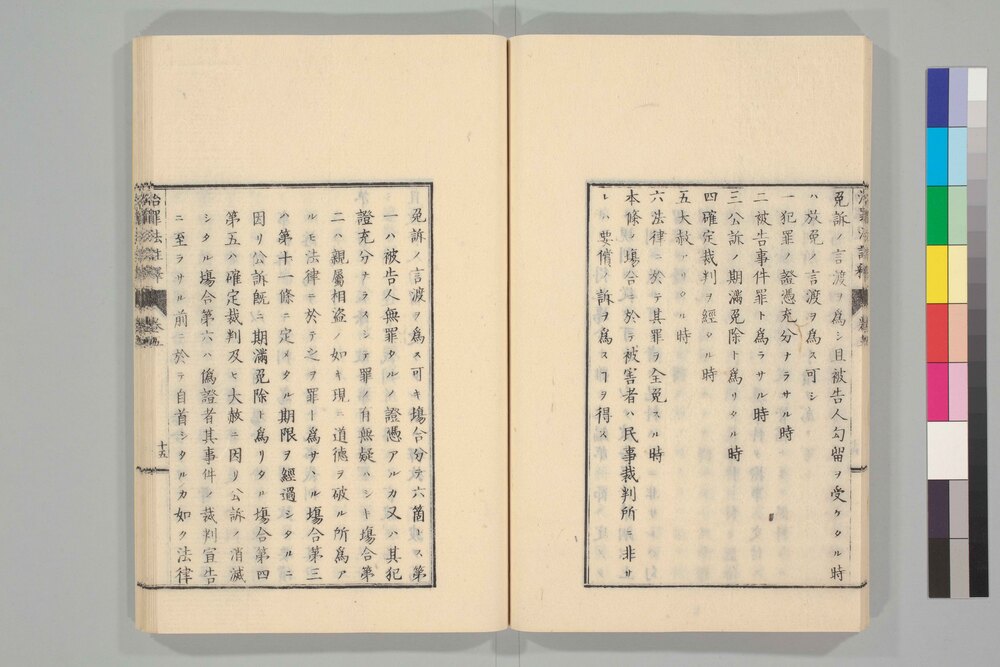 免訴ノ言渡ヲ爲シ且被告人勾留ヲ受ケタル時
ハ放免ノ言渡ヲ爲ス可シ
一犯罪ノ證憑充分ナラサル時
二被告事件罪ト爲ラサル時
三公訴ノ期滿免除ト爲リタル時
四確定裁判ヲ經タル時
五大赦アリタル時
六法律ニ於テ其罪ヲ全免スル時
本條ノ塲合ニ於テ被害者ハ民事裁判所ニ非サ
レハ要償ノ訴ヲ爲スヿヲ得ス
免訴ノ言渡ヲ爲ス可キ塲合分テ六箇トス第
一ハ被告人無罪タルノ證憑アルカ又ハ其犯
證充分ナラスシテ罪ノ有無疑ハシキ塲合第
二ハ親屬相盗ノ如キ現ニ道德ヲ破ル所爲ア
ルモ法律ニ於テ之ヲ罪ト爲サヽル塲合第三
ハ第十一條ニ定メタル期限ヲ經過シタルニ
因リ公訴既ニ期滿免除ト爲リタル塲合第四
第五ハ確定裁判及ヒ大赦ニ因リ公訴ノ消滅
シタル塲合第六ハ僞證者其事件ノ裁判宣告
ニ至ラサル前ニ於テ自首シタルカ如ク法律
治罪法註釋
十五